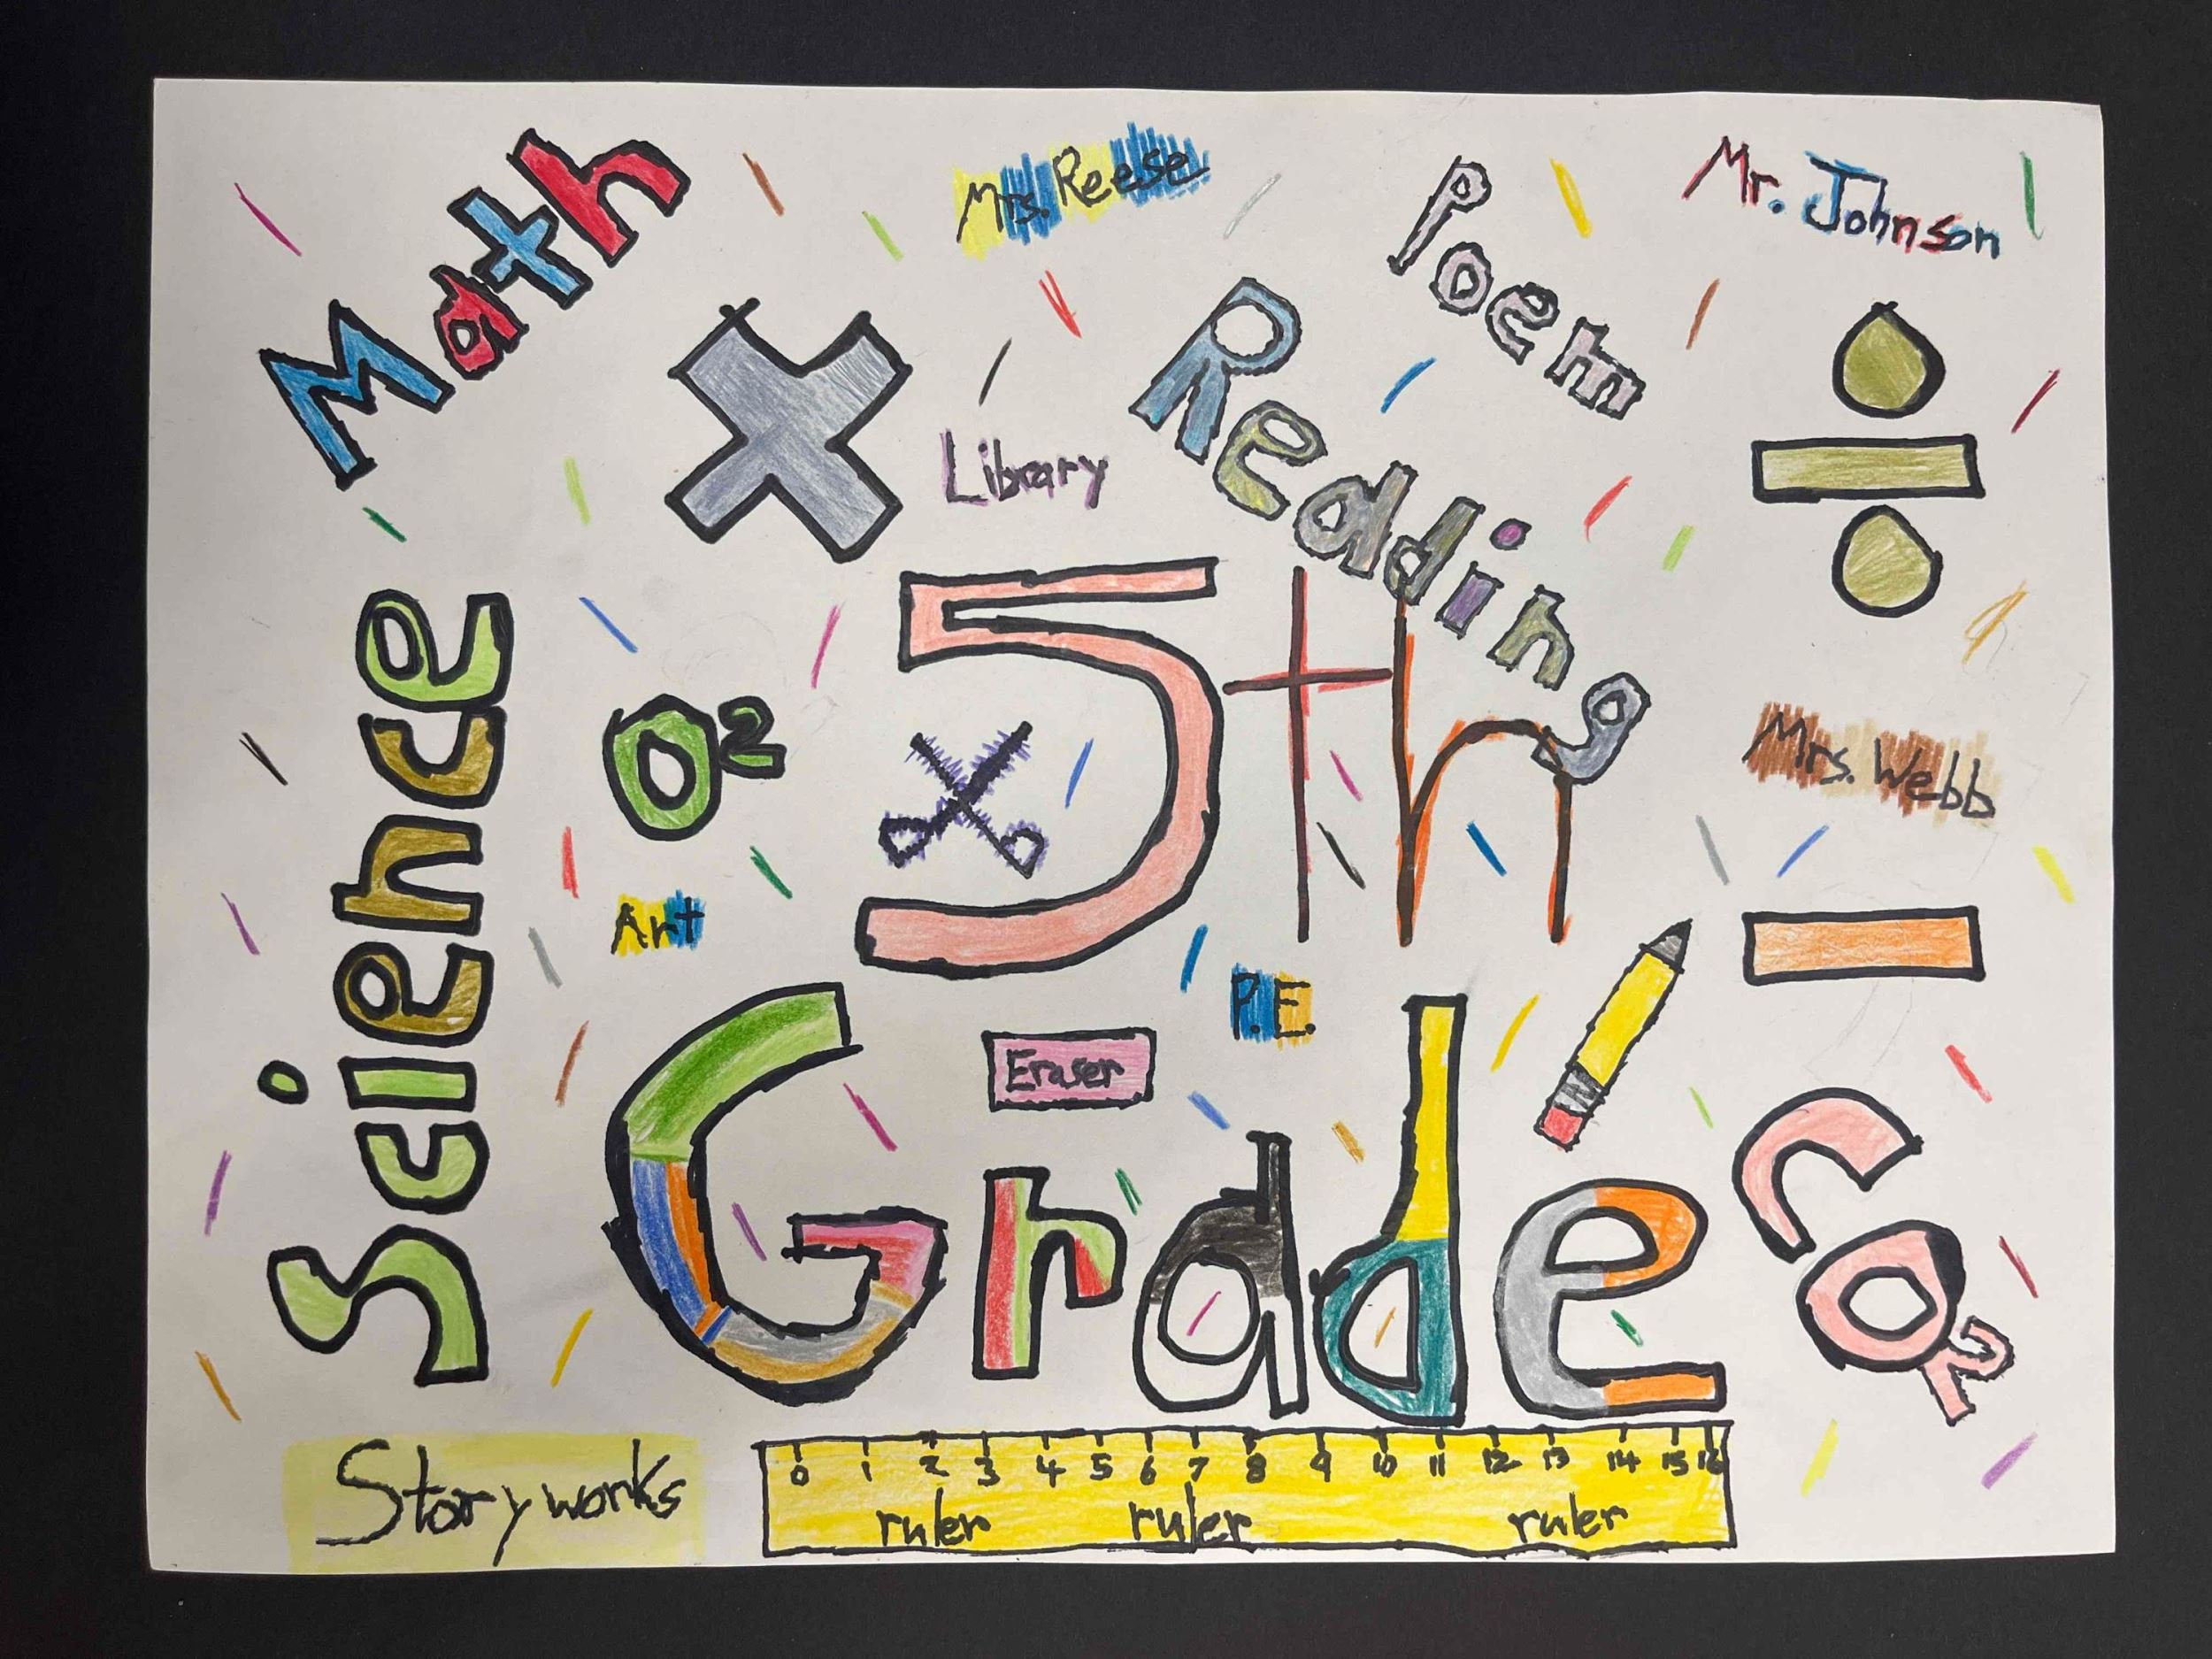 Math
Mrs. Reese
Poem
Mr. Johnson
Library
Redding
÷
Science
O²
5th
Mrs. Webb
Art
P.E.
Eraser
Grade
CO2
Storyworks
0 1 2 3 4 5 6 7 8 9 10 11 12 13 14 15 16
ruler ruler ruler